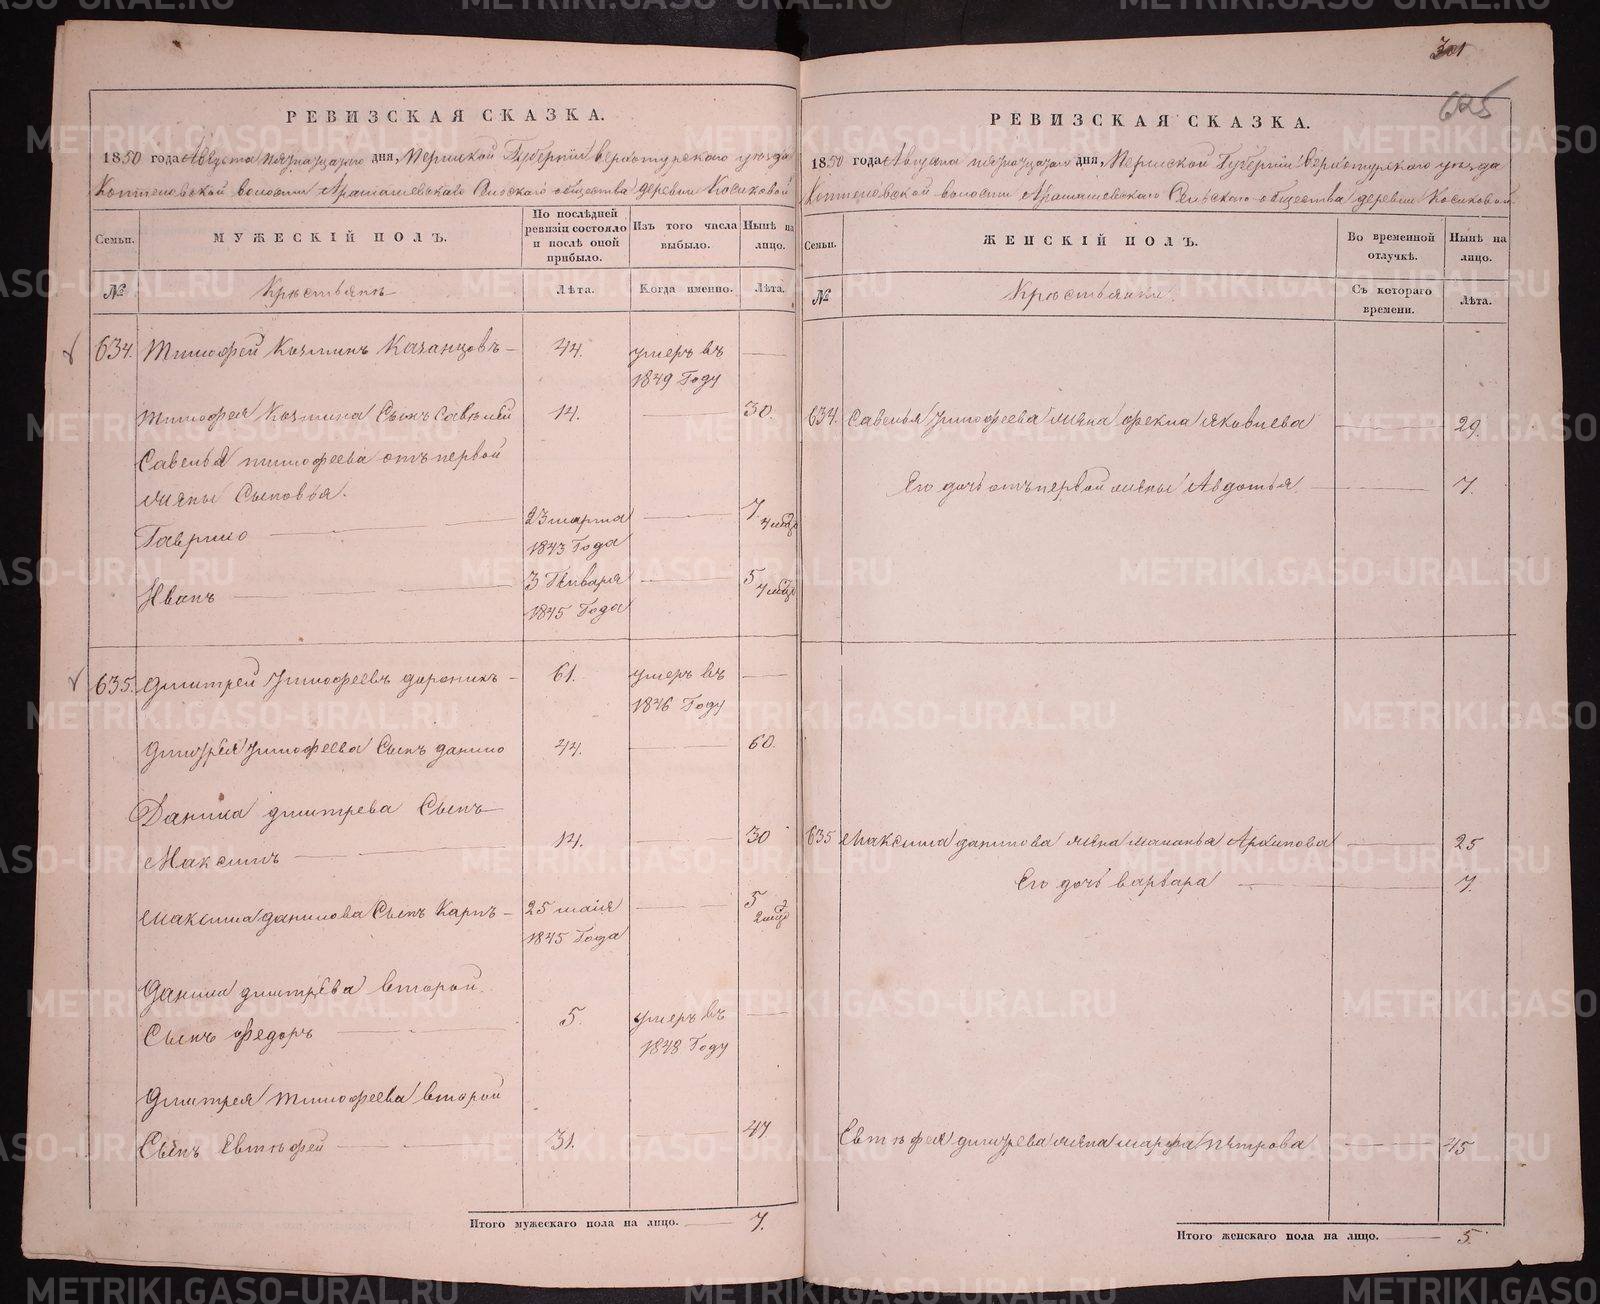 301
625
РЕВИЗСКАЯ СКАЗКА.
1850 года Августа пятнадцатого дня, Пермской Губернии Верхотурского уезда
Коптеловской волости Арамашевского Сельского общества деревни Косиковой
Семьи. МУЖЕСКІЙ ПОЛЪ. По послѣдней ревизіи состояло и послѣ оной прибыло. Изъ того числа выбыло. Нынѣ на лицо.
№ Крестьянъ Лѣта. Когда именно. Лѣта.
634. Тимофей Козминъ Казанцовъ 44. умеръ въ
1849 Году
Тимофея Козмина Сынъ Савелей 14. 30.
Савелья тимофеева отъ первой
жены Сыновья.
Гаврило 23 марта 7 4 мѣся
1843 Года
Иванъ 3 Генваря 5 7 мѣся
1845 Года
635. Дмитрей Тимофеевъ 61. умеръ въ
1846 Году
Дмитрея Тимофеева Сынъ данило 44. 60.
Данила дмитрева Сынъ
Максимъ 14. 30
Максима данилова Сынъ Карпъ 25 маія 5 2 мѣся
1845 Года
Данила дмитрева второй
Сынъ Федоръ 5. умеръ въ
1848 Году
Дмитрея тимофеева второй
Сынъ Евтефей 31. 47
Итого мужескаго пола на лицо. 7.
РЕВИЗСКАЯ СКАЗКА.
1850 года Августа пятнадцатого дня, Пермской Губернии Верхотурского уезда
Коптеловской волости Арамашевского Сельского общества деревни Косиковой
Семьи. ЖЕНСКІЙ ПОЛЪ. Во временной отлучкѣ. Нынѣ на лицо.
№ Крестьянки Съ котораго времени. Лѣта.
634. Савелья Тимофеева жена Фекла Яковлева 29.
Его дочь отъ первой жены Авдотья 7.
635 Максима данилова жена маланья Архипова 25
Его дочь варвара 7.
Евтефея дмитрева жена марфа петрова 45
Итого женскаго пола на лицо. 5.
METRIKI.GASO-URAL.RU